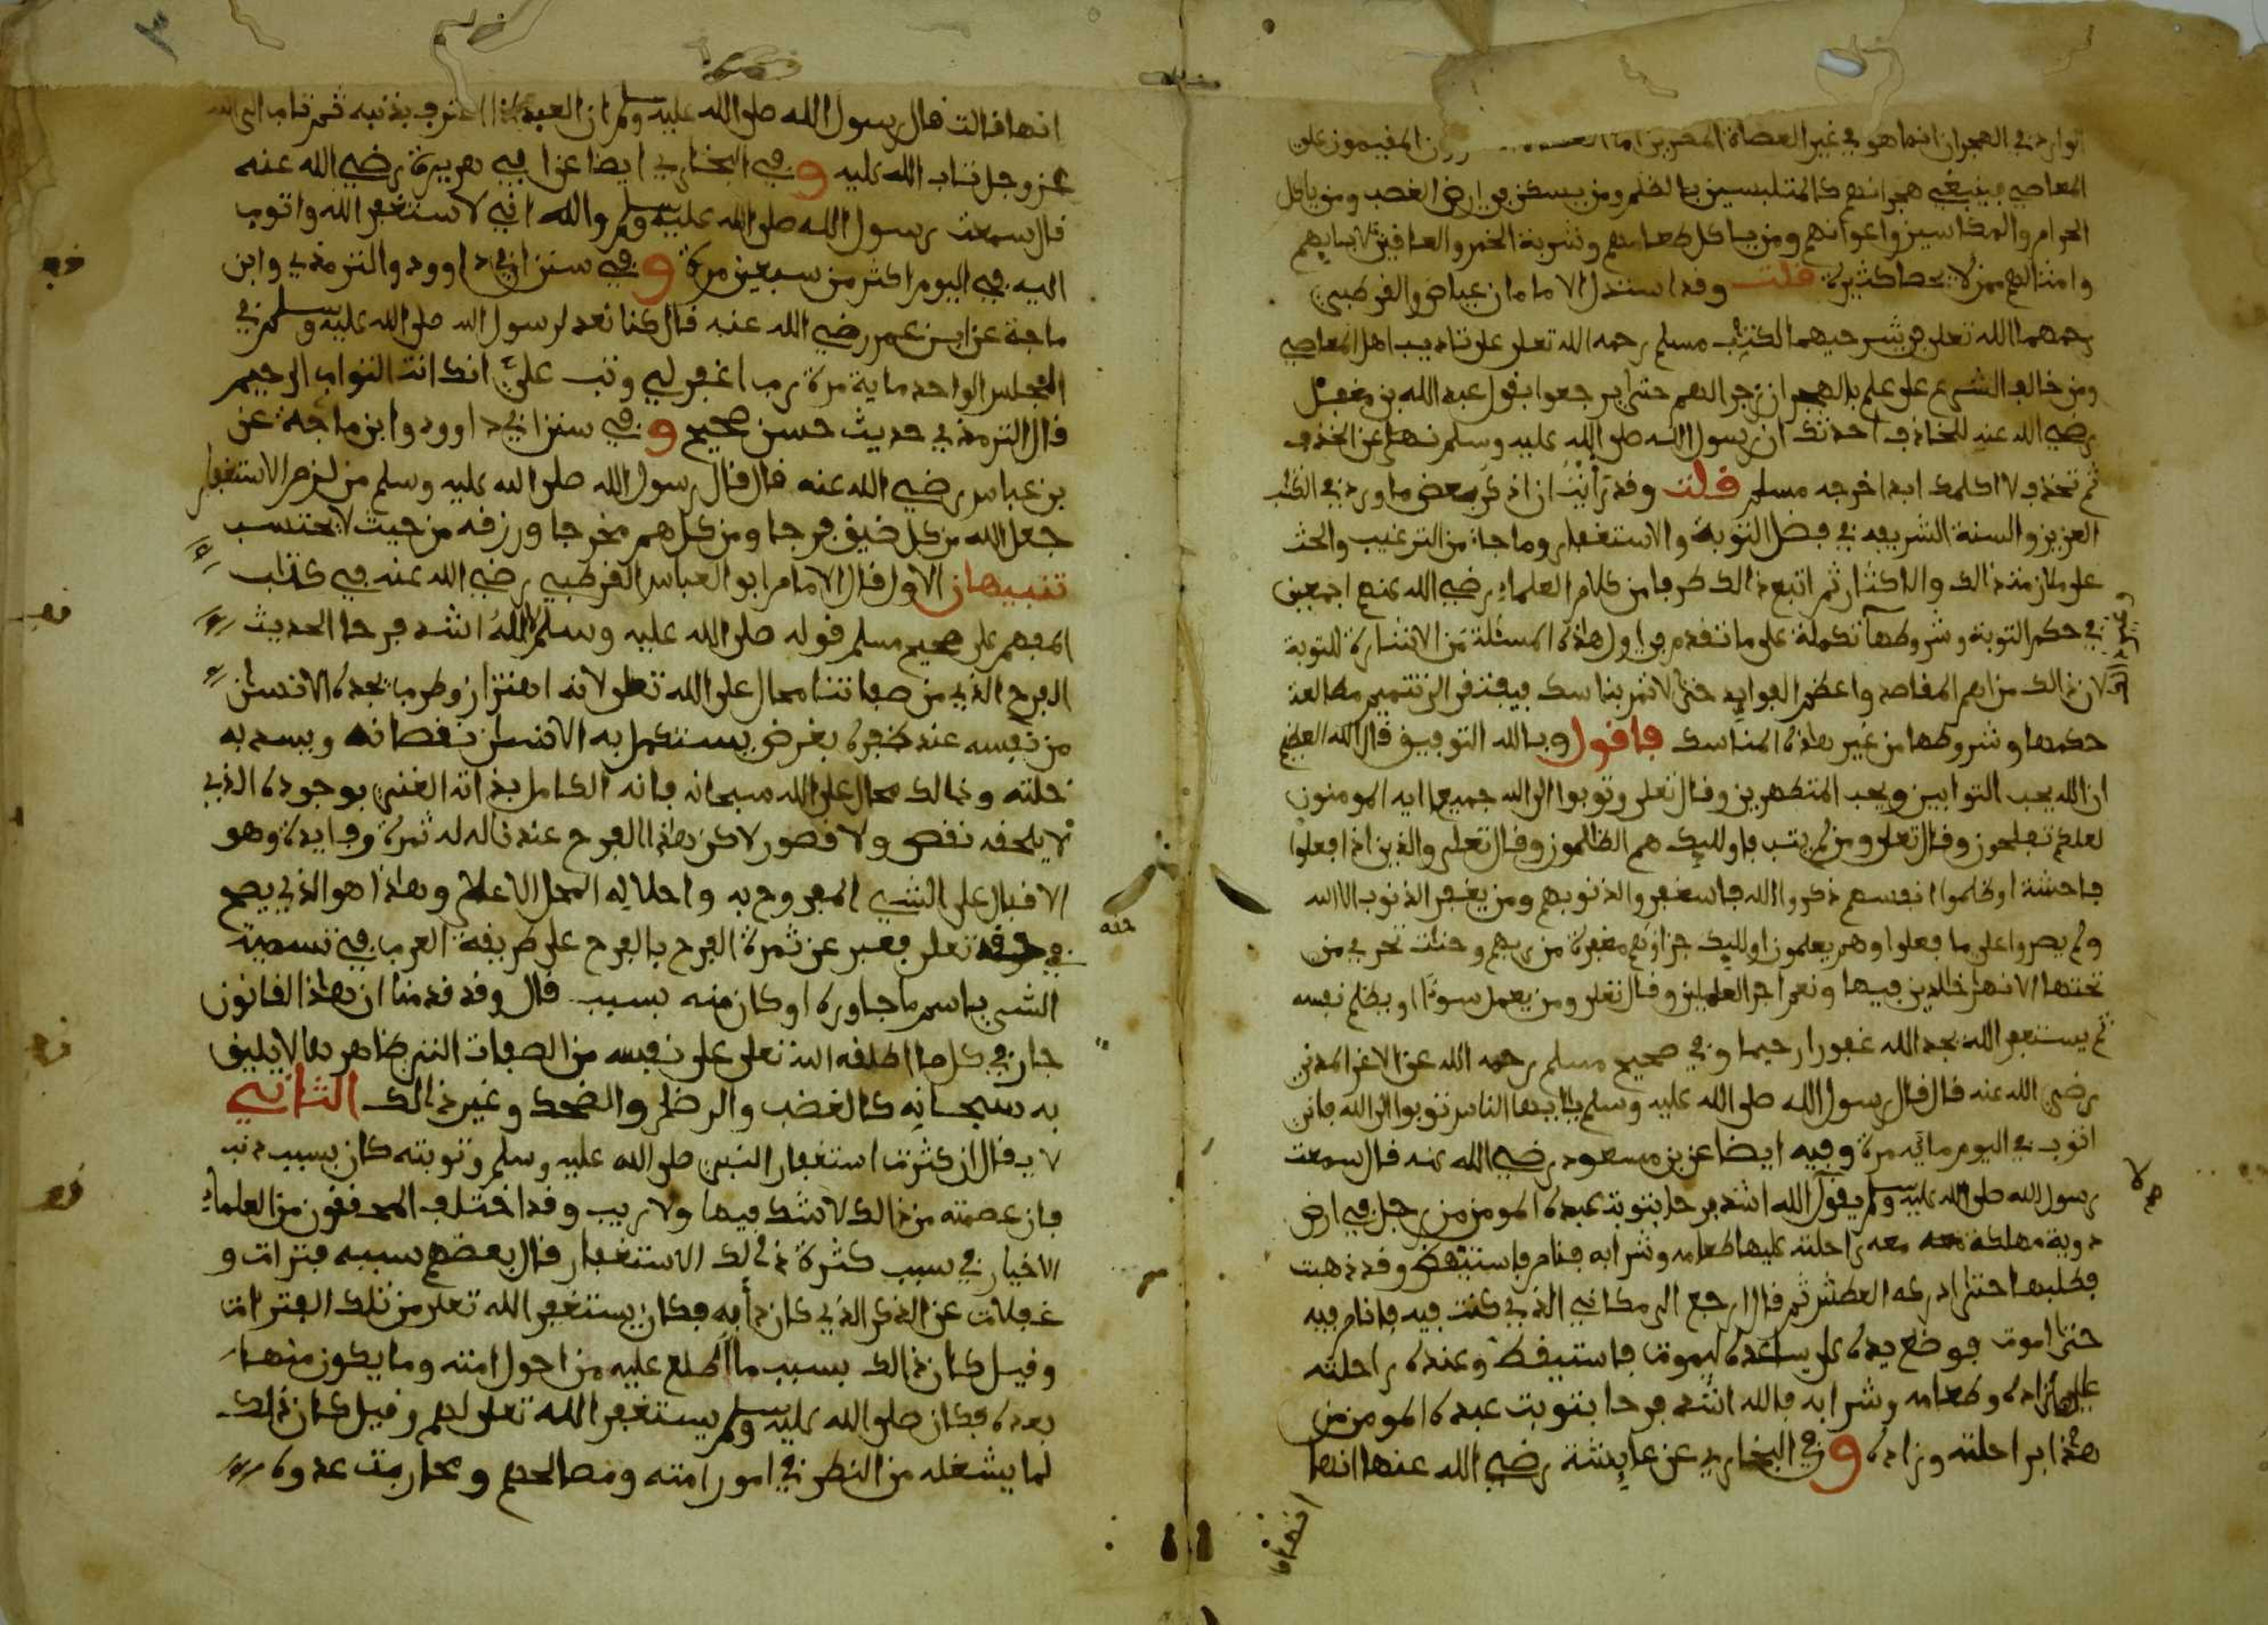 الوارد في الهجران انما هو في غير العصاة المصرين اما المقيمون على
المعاصي فينبغي هجرانهم كالمتلبسين بالظلم ومن يسكن في ارض الغصب ومن ياكل
الحرام والمكاسين واعوانهم ومن ياكل طعامهم وشربة الخمر والعاقين لابايهم
وامثالهم ممن لا يحصا كثيرة قلت وقد استدل الامامان عياض والقرطبي
رحمهما الله تعلى في شرحيهما لكتاب مسلم رحمه الله تعلى على تاديب اهل المعاصي
ومن خالف الشرع على علم بالهجران زجرا لهم حتى يرجعوا بقول عبد الله بن مغفل
رضي الله عنه للخاذف احدثك ان رسول الله صلى الله عليه وسلم نهى عن الخذف
ثم تخذف لا اكلمك ابدا خرجه مسلم قلت وقد رأيت ان اذكر بعض ما ورد في الكتاب
العزيز والسنة الشريفة في فضل التوبة والاستغفار وما جاء من الترغيب والحث
على ملازمة ذالك والاكثار ثم اتبع ذالك طرفا من كلام العلماء رضي الله عنهم اجمعين
في حكم التوبة وشروطها تكملة على ما تقدم في اول هاذه المسئلة من الاشارة للتوبة
لان ذالك من اهم المقاصد واعظم الفوايد حتى لا تمر بناسك فيفتقر الى تتميم مطالعة
حكمها وشروطها من غير هاذه المناسك فاقول وبالله التوفيق قال الله العظيم
ان الله يحب التوابين ويحب المتطهرين وقال تعلى وتوبوا الى الله جميعا ايه المومنون
لعلكم تفلحون وقال تعلى ومن لم يتب فاولئك هم الظالمون وقال تعلى والذين اذا فعلوا
فاحشة او ظلموا انفسهم ذكروا الله فاستغفروا لذنوبهم ومن يغفر الذنوب الا الله
ولم يصروا على ما فعلوا وهم يعلمون اولئك جزاؤهم مغفرة من ربهم وجنات تجري من
تحتها الانهار خالدين فيها ونعم اجر العاملين وقال تعلى ومن يعمل سوءا او يظلم نفسه
ثم يستغفر الله يجد الله غفورا رحيما وفي صحيح مسلم رحمه الله عن الاغر المدني
رضي الله عنه قال قال رسول الله صلى الله عليه وسلم يا ايها الناس توبوا الى الله فاني
اتوب في اليوم ماية مرة وفيه ايضا عن بن مسعود رضي الله عنه قال سمعت
رسول الله صلى الله عليه وسلم يقول الله اشد فرحا بتوبة عبده المومن من رجل في ارض
دوية مهلكة معه راحلته عليها طعامه وشرابه فنام فاستيقظ وقد ذهبت
فطلبها حتى ادركه العطش ثم قال ارجع الى مكاني الذي كنت فيه فانام فيه
حتى اموت فوضع يده على ساعده ليموت فاستيقظ وعنده راحلته
عليها زاده وطعامه وشرابه فالله اشد فرحا بتوبت عبده المومن من
هذا براحلته وزاده وفي البخاري عن عايشة رضي الله عنها انها
انها قالت
انها قالت قال رسول الله صلى الله عليه وسلم ان العبد اذا اعترف بذنبه ثم تاب الى الله
عز وجل تاب الله عليه وفي البخاري ايضا عن ابي هريرة رضي الله عنه
قال سمعت رسول الله صلى الله عليه وسلم والله اني لاستغفر الله واتوب
اليه في اليوم اكثر من سبعين مرة وفي سنن ابي داوود والترمذي وابن
ماجة عن ابن عمر رضي الله عنه قال كنا نعد لرسول الله صلى الله عليه وسلم في
المجلس الواحد ماية مرة رب اغفر لي وتب علي انك انت التواب الرحيم
قال الترمذي حديث حسن صحيح وفي سنن ابي داوود وابن ماجة عن
بن عباس رضي الله عنه قال قال رسول الله صلى الله عليه وسلم من لزم الاستغفار
جعل الله من كل ضيق فرجا ومن كل هم مخرجا ورزقه من حيث لا يحتسب
تنبيهان الاول قال الامام ابو العباس القرطبي رضي الله عنه في كتاب
المفهم على صحيح مسلم قوله صلى الله عليه وسلم لله اشد فرحا الحديث
الفرح الذي من صفاتنا محال على الله تعلى لانه اهتزاز وطرب يجده الانسان
من نفسه عند ظفره بغرض يستكمل به الانسان نقصانه ويسد به
خلته وذالك محال على الله سبحانه فانه الكامل بذاته الغني بوجوده الذي
لا يلحقه نقص ولا قصور لاكن هاذا الفرح عندنا له ثمرة وفايدة وهو
الاقبال على الشيء المفروح به واحلاله المحل الاعلى وهاذا هو الذي يصح
في حقه تعلى فعبر عن ثمرة الفرح بالفرح على طريقة العرب في تسمية
الشيء باسم ما جاوره او كان منه بسبب قال وقد قدمنا ان هاذا القانون
جار في كل ما اطلقه الله تعلى على نفسه من الصفات التي ظاهرها لا يليق
به سبحانه كالغضب والرضى والضحك وغير ذالك الثاني
لا يقال ان كثرت استغفار النبي صلى الله عليه وسلم وتوبته كان بسبب ذنب
فان عصمته من ذالك لا شك فيها ولا ريب وقد اختلف المحققون من العلماء
الاخيار في سبب كثرة ذالك الاستغفار فقال بعضهم سببه فترات و
غفلات عن الذكر الذي كان دأبه فكان يستغفر الله تعلى من تلك الفترات
وقيل كان ذالك بسبب ما اطلع عليه من احول امته وما يكون منها
بعده فكان صلى الله عليه وسلم يستغفر الله تعلى لهم وقيل كان ذلك
لما يشغله من النظر في امور امته ومصالحهم ومحاربت عدوه